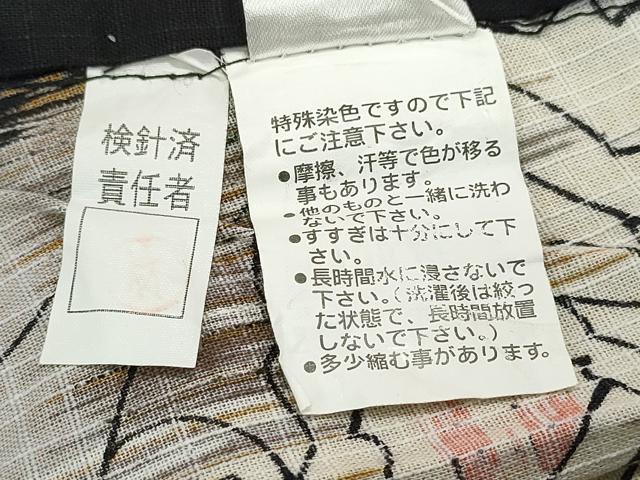 検針済
責任者
特殊染色ですので下記
にご注意下さい。
●摩擦、汗等で色が移る
事もあります。
●他のものと一緒に洗わ
ないで下さい。
●すすぎは十分にして下
さい。
●長時間水に浸さないで
下さい。(洗濯後は絞っ
た状態で、長時間放置
しないで下さい。)
●多少縮む事があります。